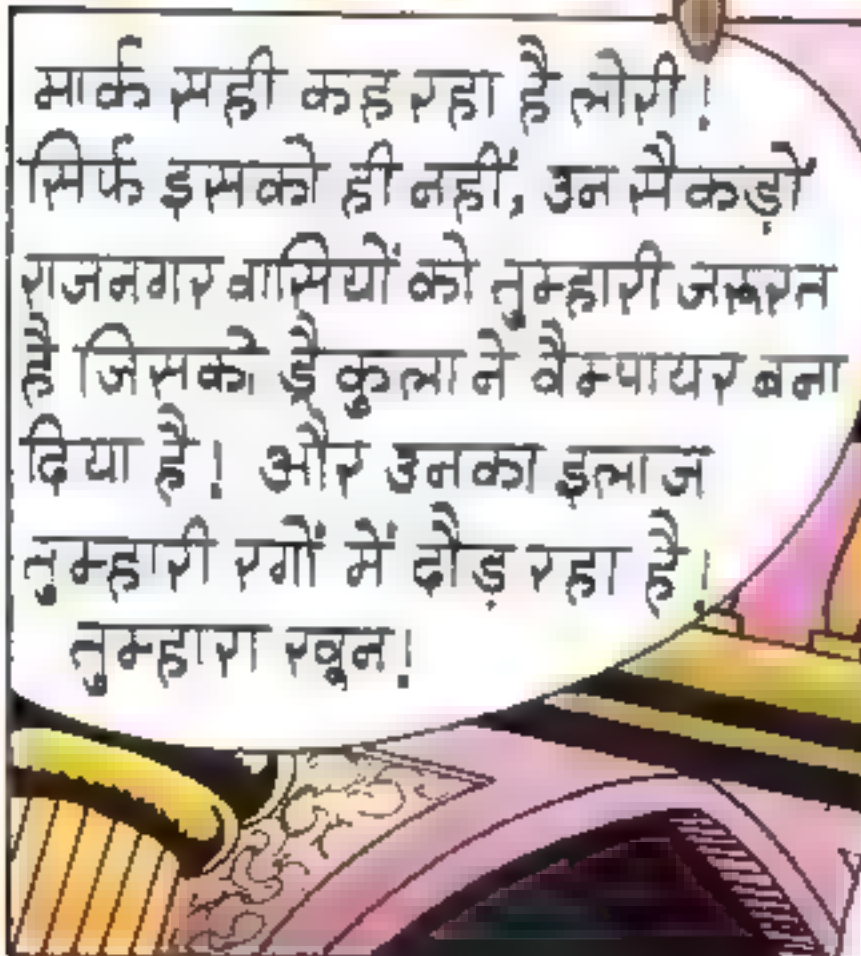 मार्क सही कह रहा है लोरी!
सिर्फ इसको ही नहीं, उन सैकड़ों
राजनगर वासियों को तुम्हारी जरूरत
है जिसको ड्रैकुला ने वैम्पायर बना
दिया है! और उनका इलाज
तुम्हारी रगों में दौड़ रहा है!
तुम्हारा खून!